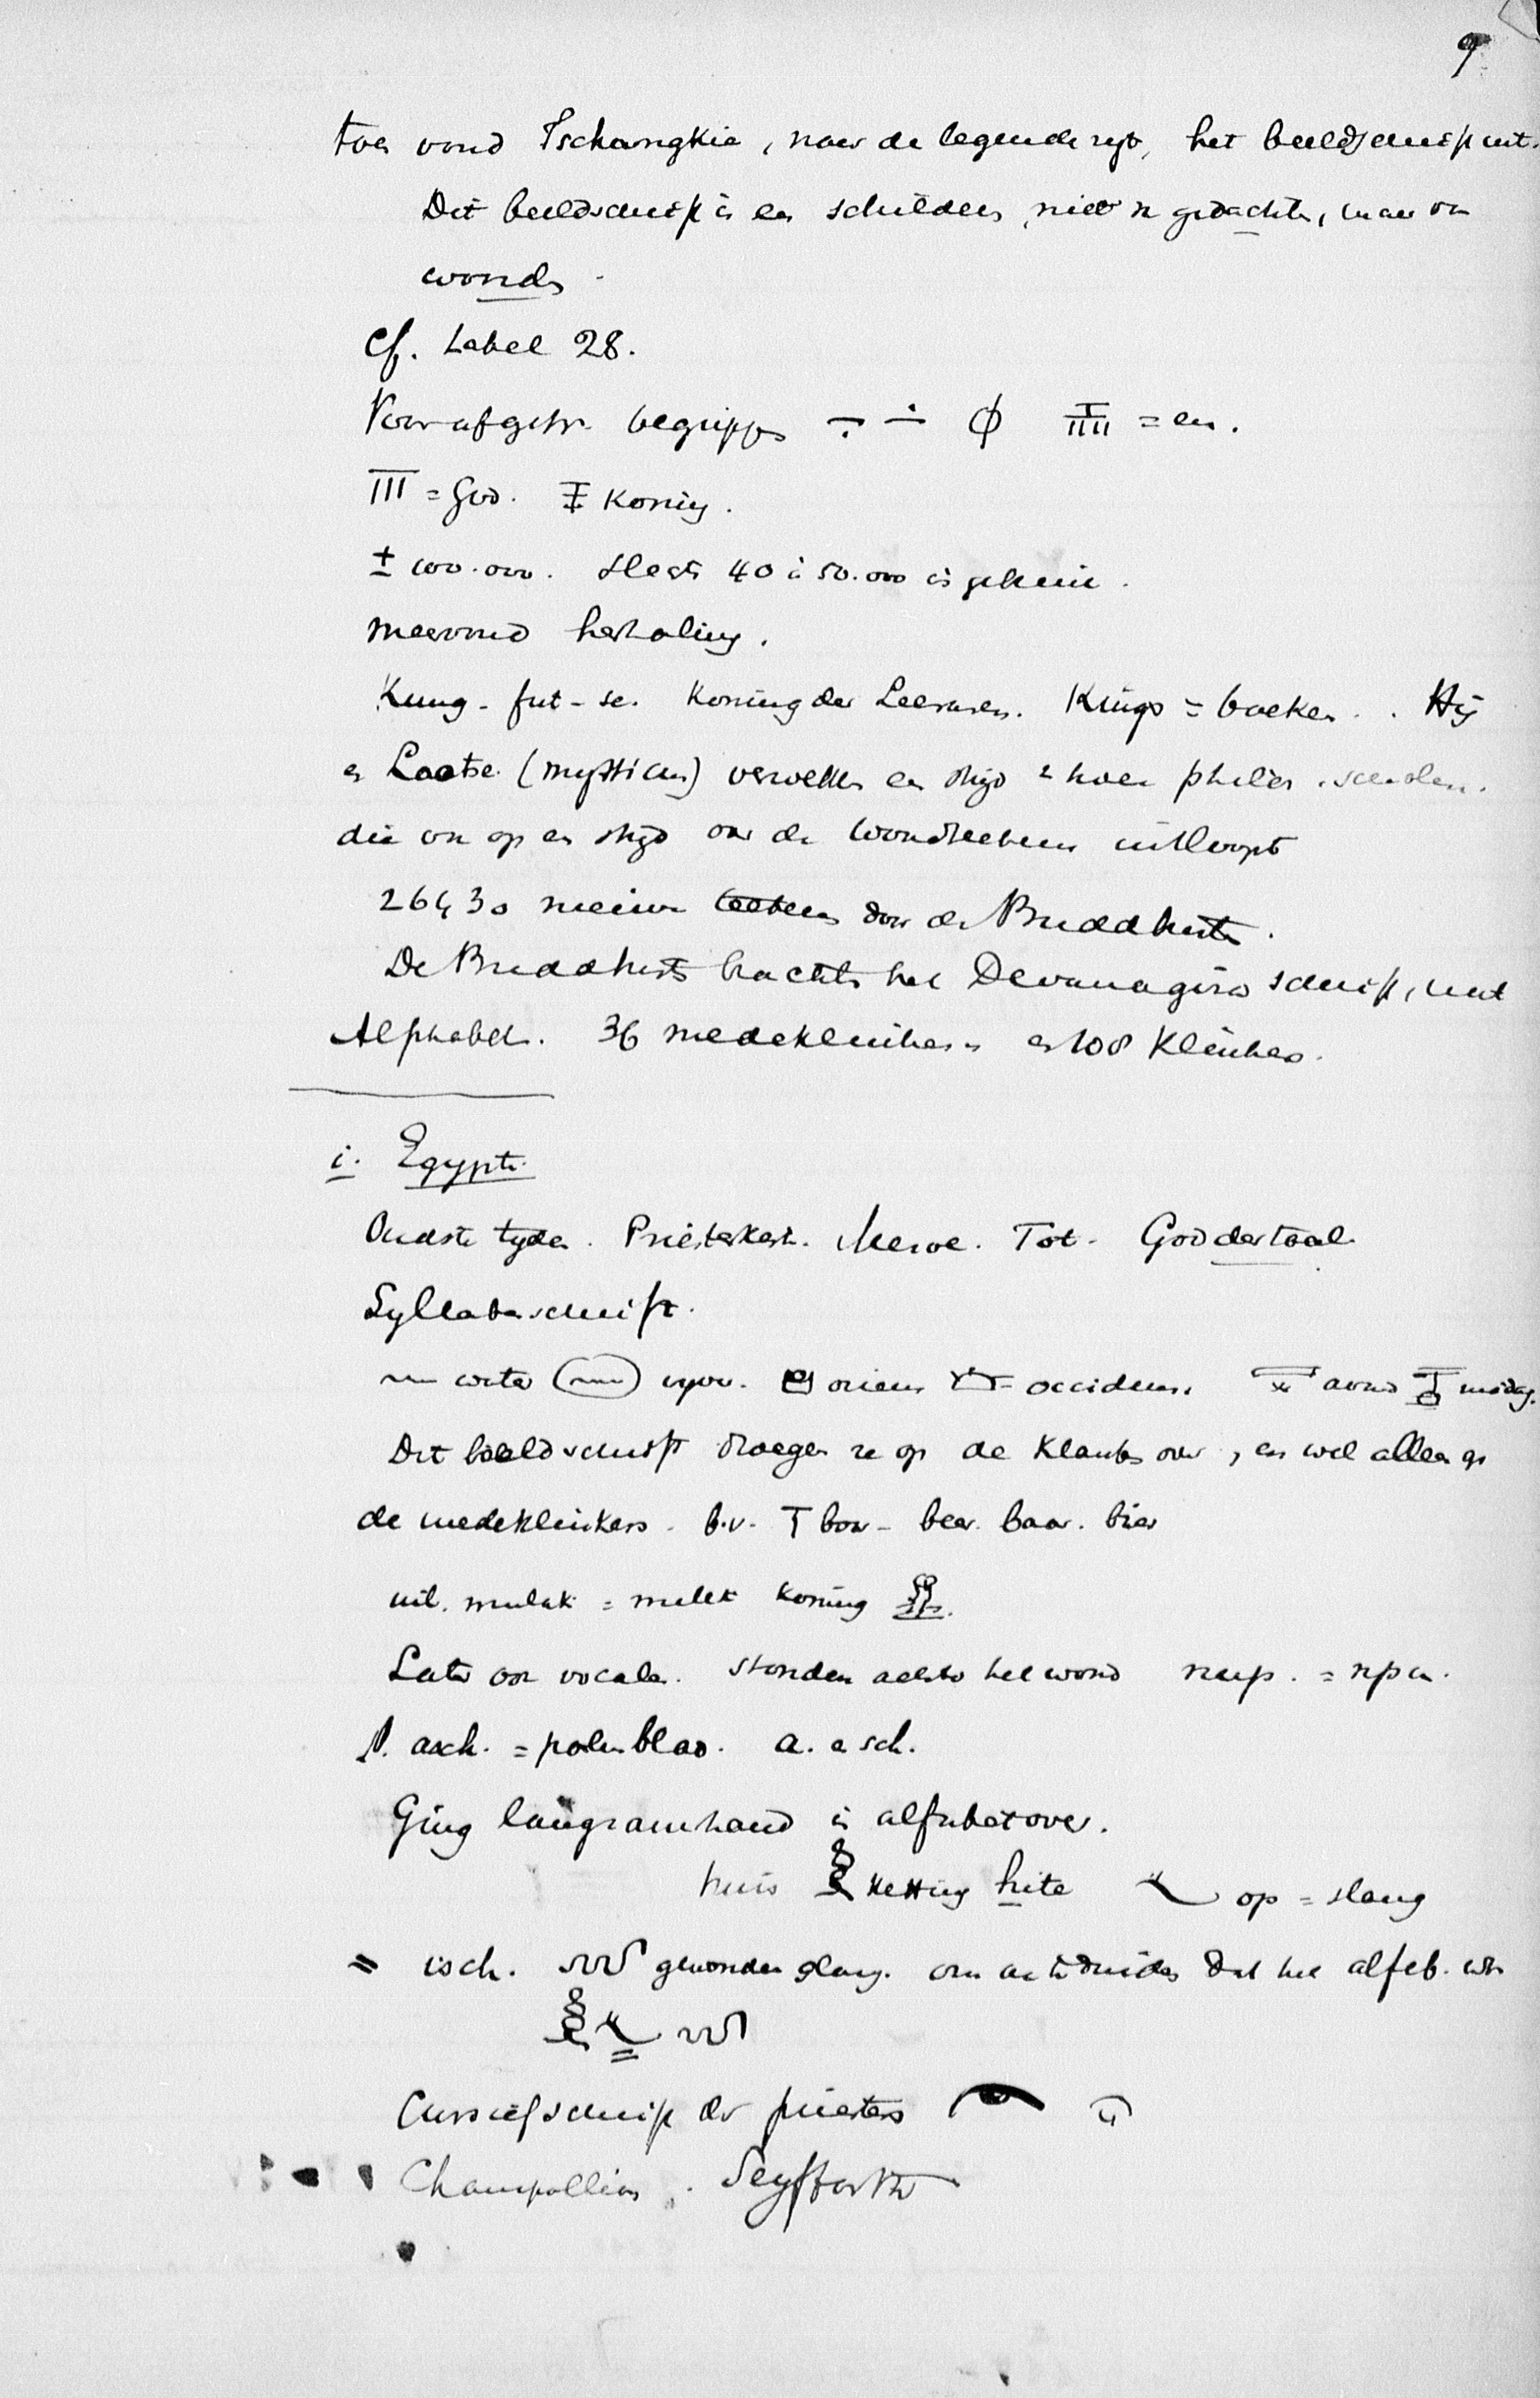 9
toen vond Tschangkie, naar de legende zegt, het beeldschrift uit.
Dit beeldschrift is een schilderen, niet v. gedachten, maar van
woorden.
Cf. tabel 28.
Voor afgetr. begrippen = en.
III = God. Koning.
± 100.000. Slechts 40 à 50.000 is gekend.
meervoud herhaling.
Kung-fut-se. Koning der Leeraren. Kings = boeken. Hij
en Laotse (mysticus) verwekken een strijd 2 philos. scholen.
die ook op een strijd over de uitloopt
26430 nieuwe teekens door de Buddhisten.
De Buddhisten brachten het Devanagiri schrift, met
Alphabet. 36 medeklinkers en 108 klinkers.
i. Egypte.
Oudste tijden. Priesterkast. Meroe. Tot. Godentaal.
Syllabenschrift.
water oriens occidens. avond middag.
Dit beeldschrift droegen ze op de klanken over, en wel alleen op
de medeklinkers. b.v. bor - beer. baar. bier
uil. mulak = melek koning
Later ook vocalen. stonden achter het woord
asch. = palmblad. a. asch.
Ging langzamerhand in alfabet over.
huis ketting hite op = slang
= isch. gewonden slang. om aan te duiden dat het alfab.
Cursiefschrift der priesters
Champollion. Seyffarth